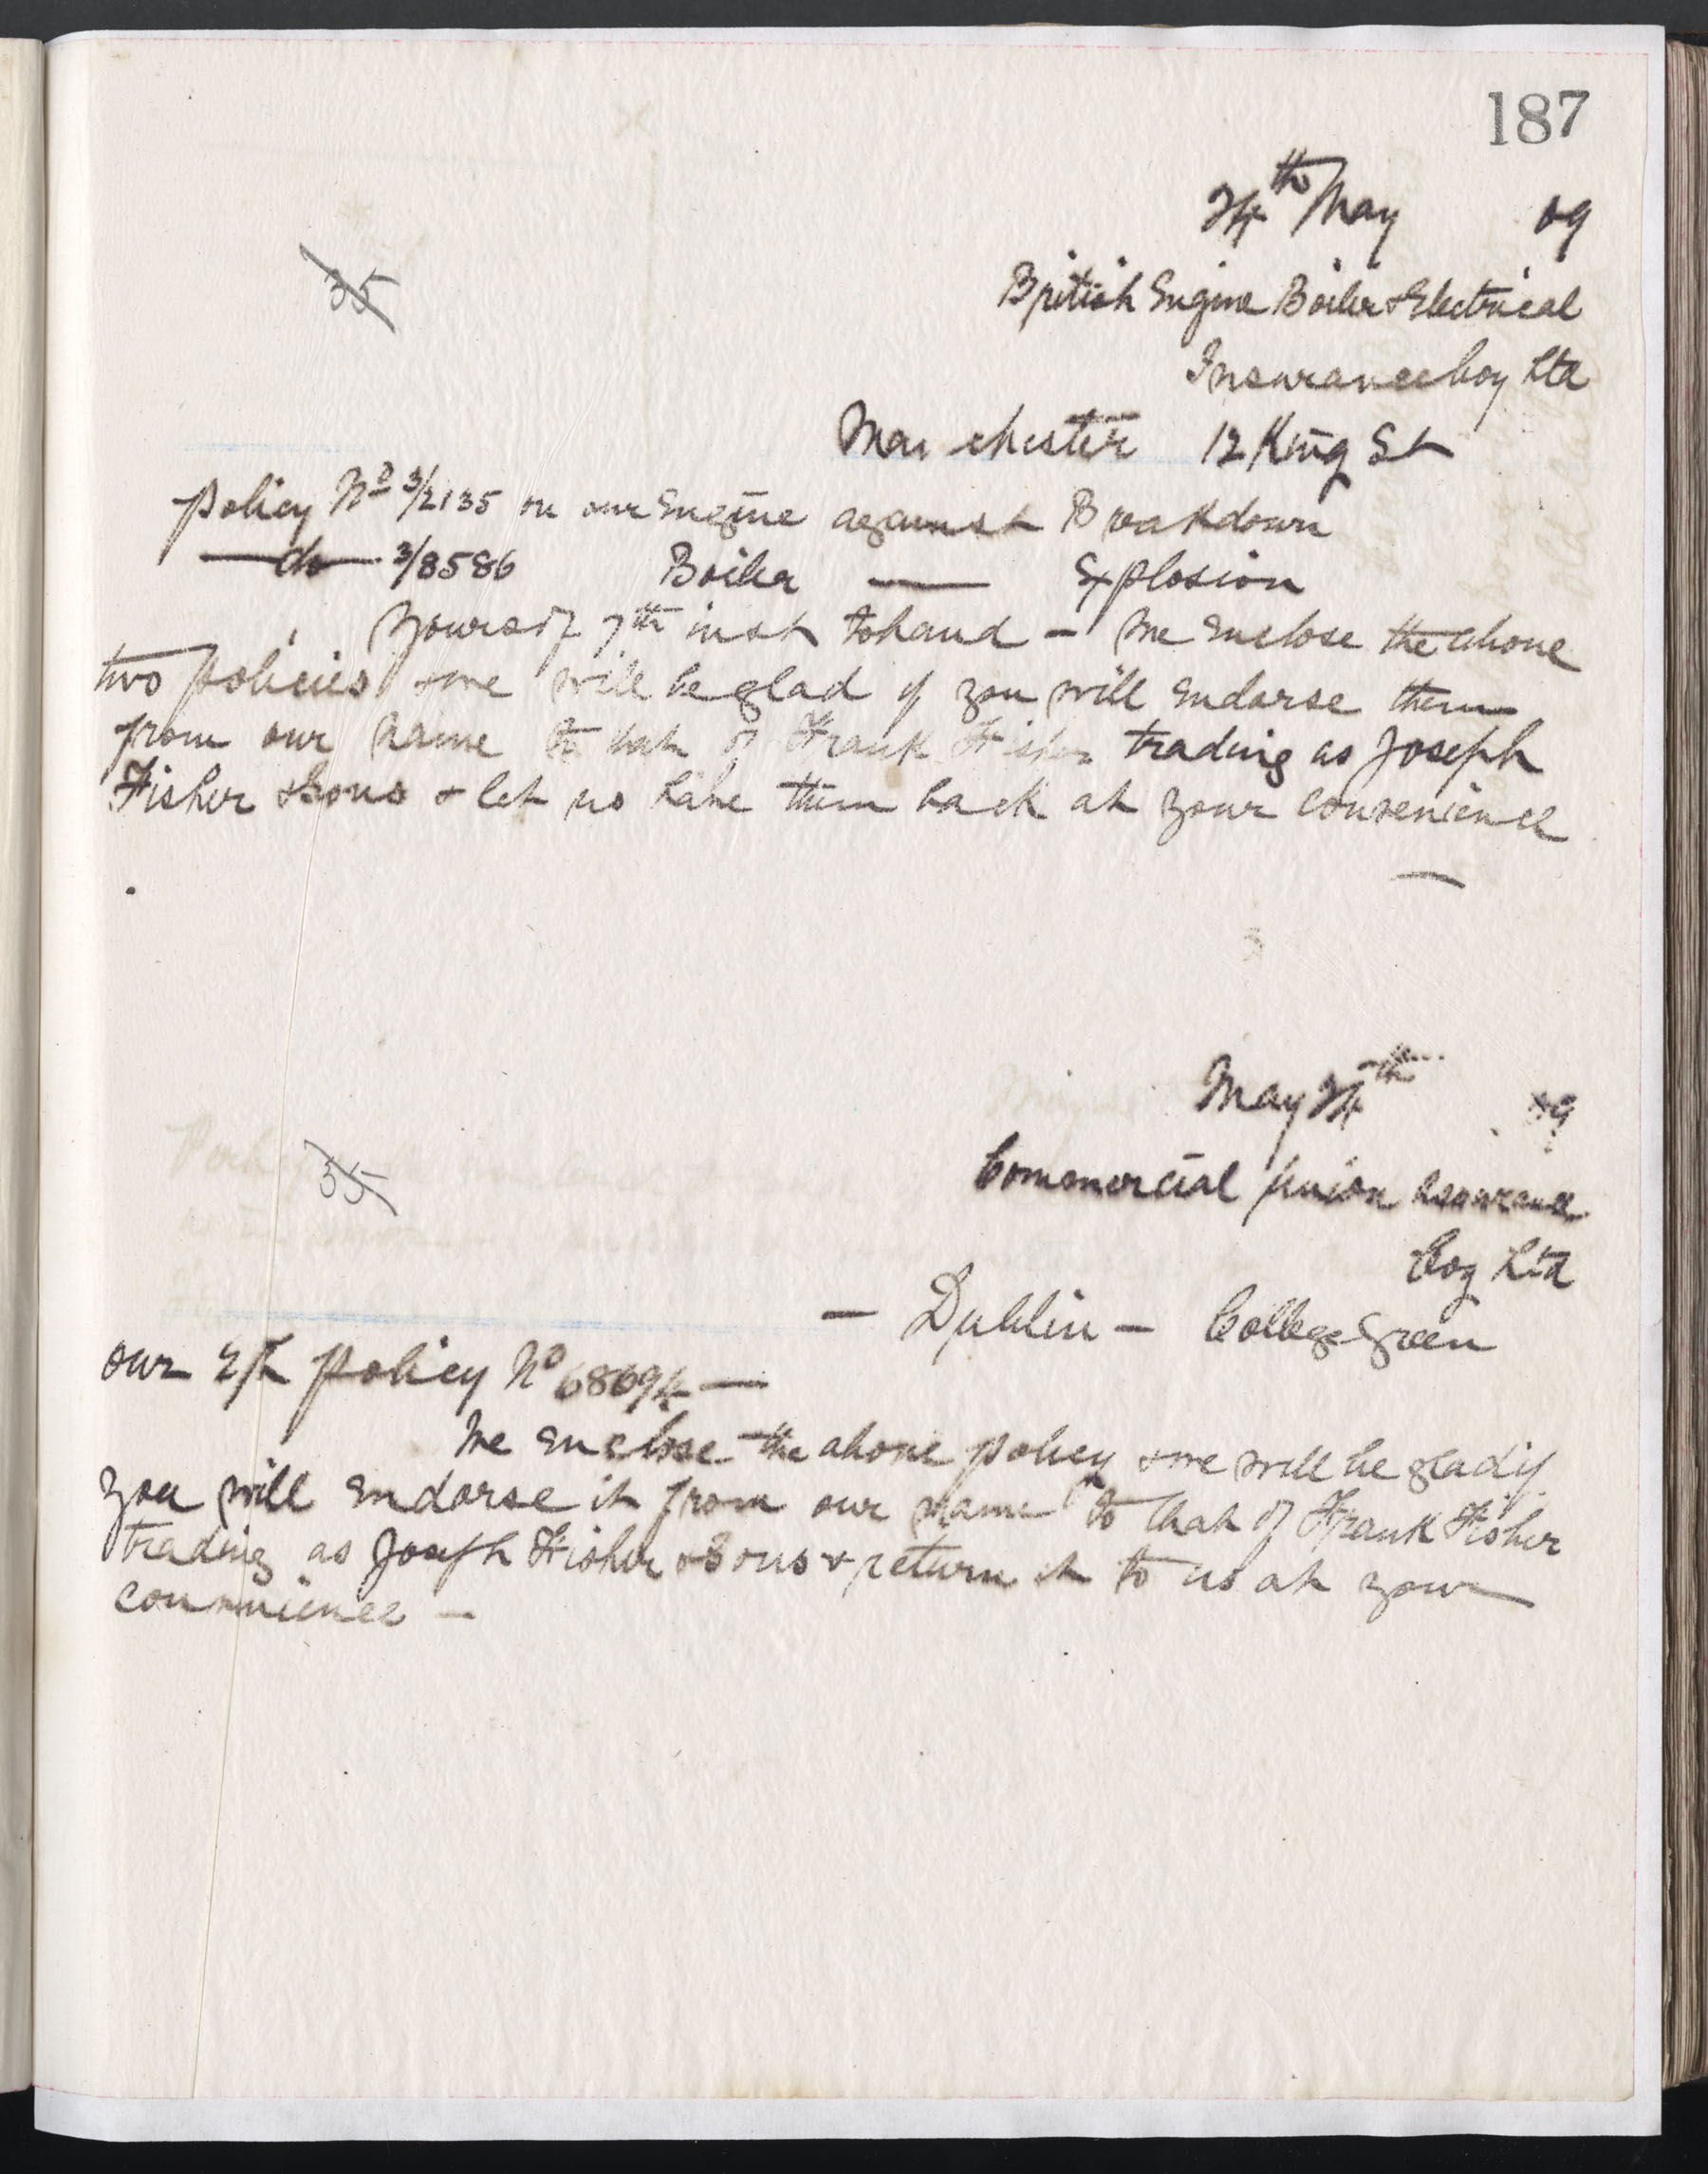 187
24th May 09
35
British Engine Boiler & Electrical
Insurance Coy Ltd
Manchester 12 King St
Policy No 3/2135 on our Engine against Breakdown
— do — 3/8586 Boiler — Explosion
Yours of 7th inst to hand - We enclose the above
two policies & we will be glad if you will endorse them
from our name to that of Frank Fisher trading as Joseph
Fisher & Sons & let us have them back at your convenience
—
May 24th 09
35
Commercial Union Assurance
Coy Ltd
- Dublin - College Green
our policy No 68694 —
We enclose the above policy & we will be glad if
you will endorse it from our name to that of Frank Fisher
trading as Joseph Fisher & Sons & return it to us at your
convenience -